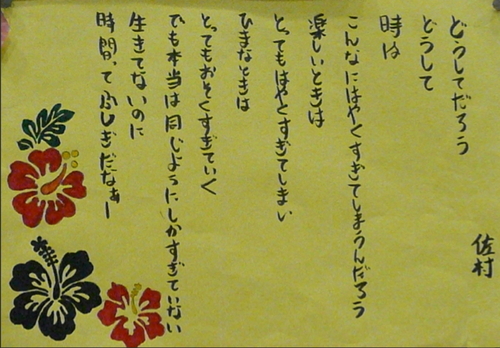 どうしてだろう
どうして
時は
こんなにはやくすぎてしまうんだろう
楽しいときは
とってもはやくすぎてしまい
ひまなときは
とってもおそくすぎていく
でも本当は同じようにしかすぎていない
生きてないのに
時間ってふしぎだなぁー
佐村